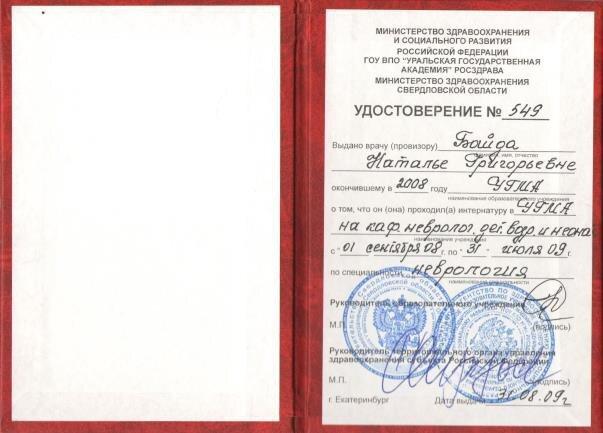 МИНИСТЕРСТВО ЗДРАВООХРАНЕНИЯ
И СОЦИАЛЬНОГО РАЗВИТИЯ
РОССИЙСКОЙ ФЕДЕРАЦИИ
ГОУ ВПО "УРАЛЬСКАЯ ГОСУДАРСТВЕННАЯ
АКАДЕМИЯ" РОСЗДРАВА
МИНИСТЕРСТВО ЗДРАВООХРАНЕНИЯ
СВЕРДЛОВСКОЙ ОБЛАСТИ
УДОСТОВЕРЕНИЕ № 549
Выдано врачу (провизору) Бойда
фамилия, имя, отчество
Наталье Григорьевне
окончившему в 2008 году УГМА
наименование образовательного учреждения
о том, что он (она) проходил(а) интернатуру в УГМА
на каф. невролог. дет. возр. и неона
наименование учреждения
с "01 сентября 08 г. по "31" июля 09 г.
по специальности неврология
наименование специальности
Руководитель образовательного учреждения
М.П. (подпись)
Руководитель территориального органа управления
здравоохранения субъекта Российской Федерации
М.П. (подпись)
г. Екатеринбург Дата выдачи 31.08.09г